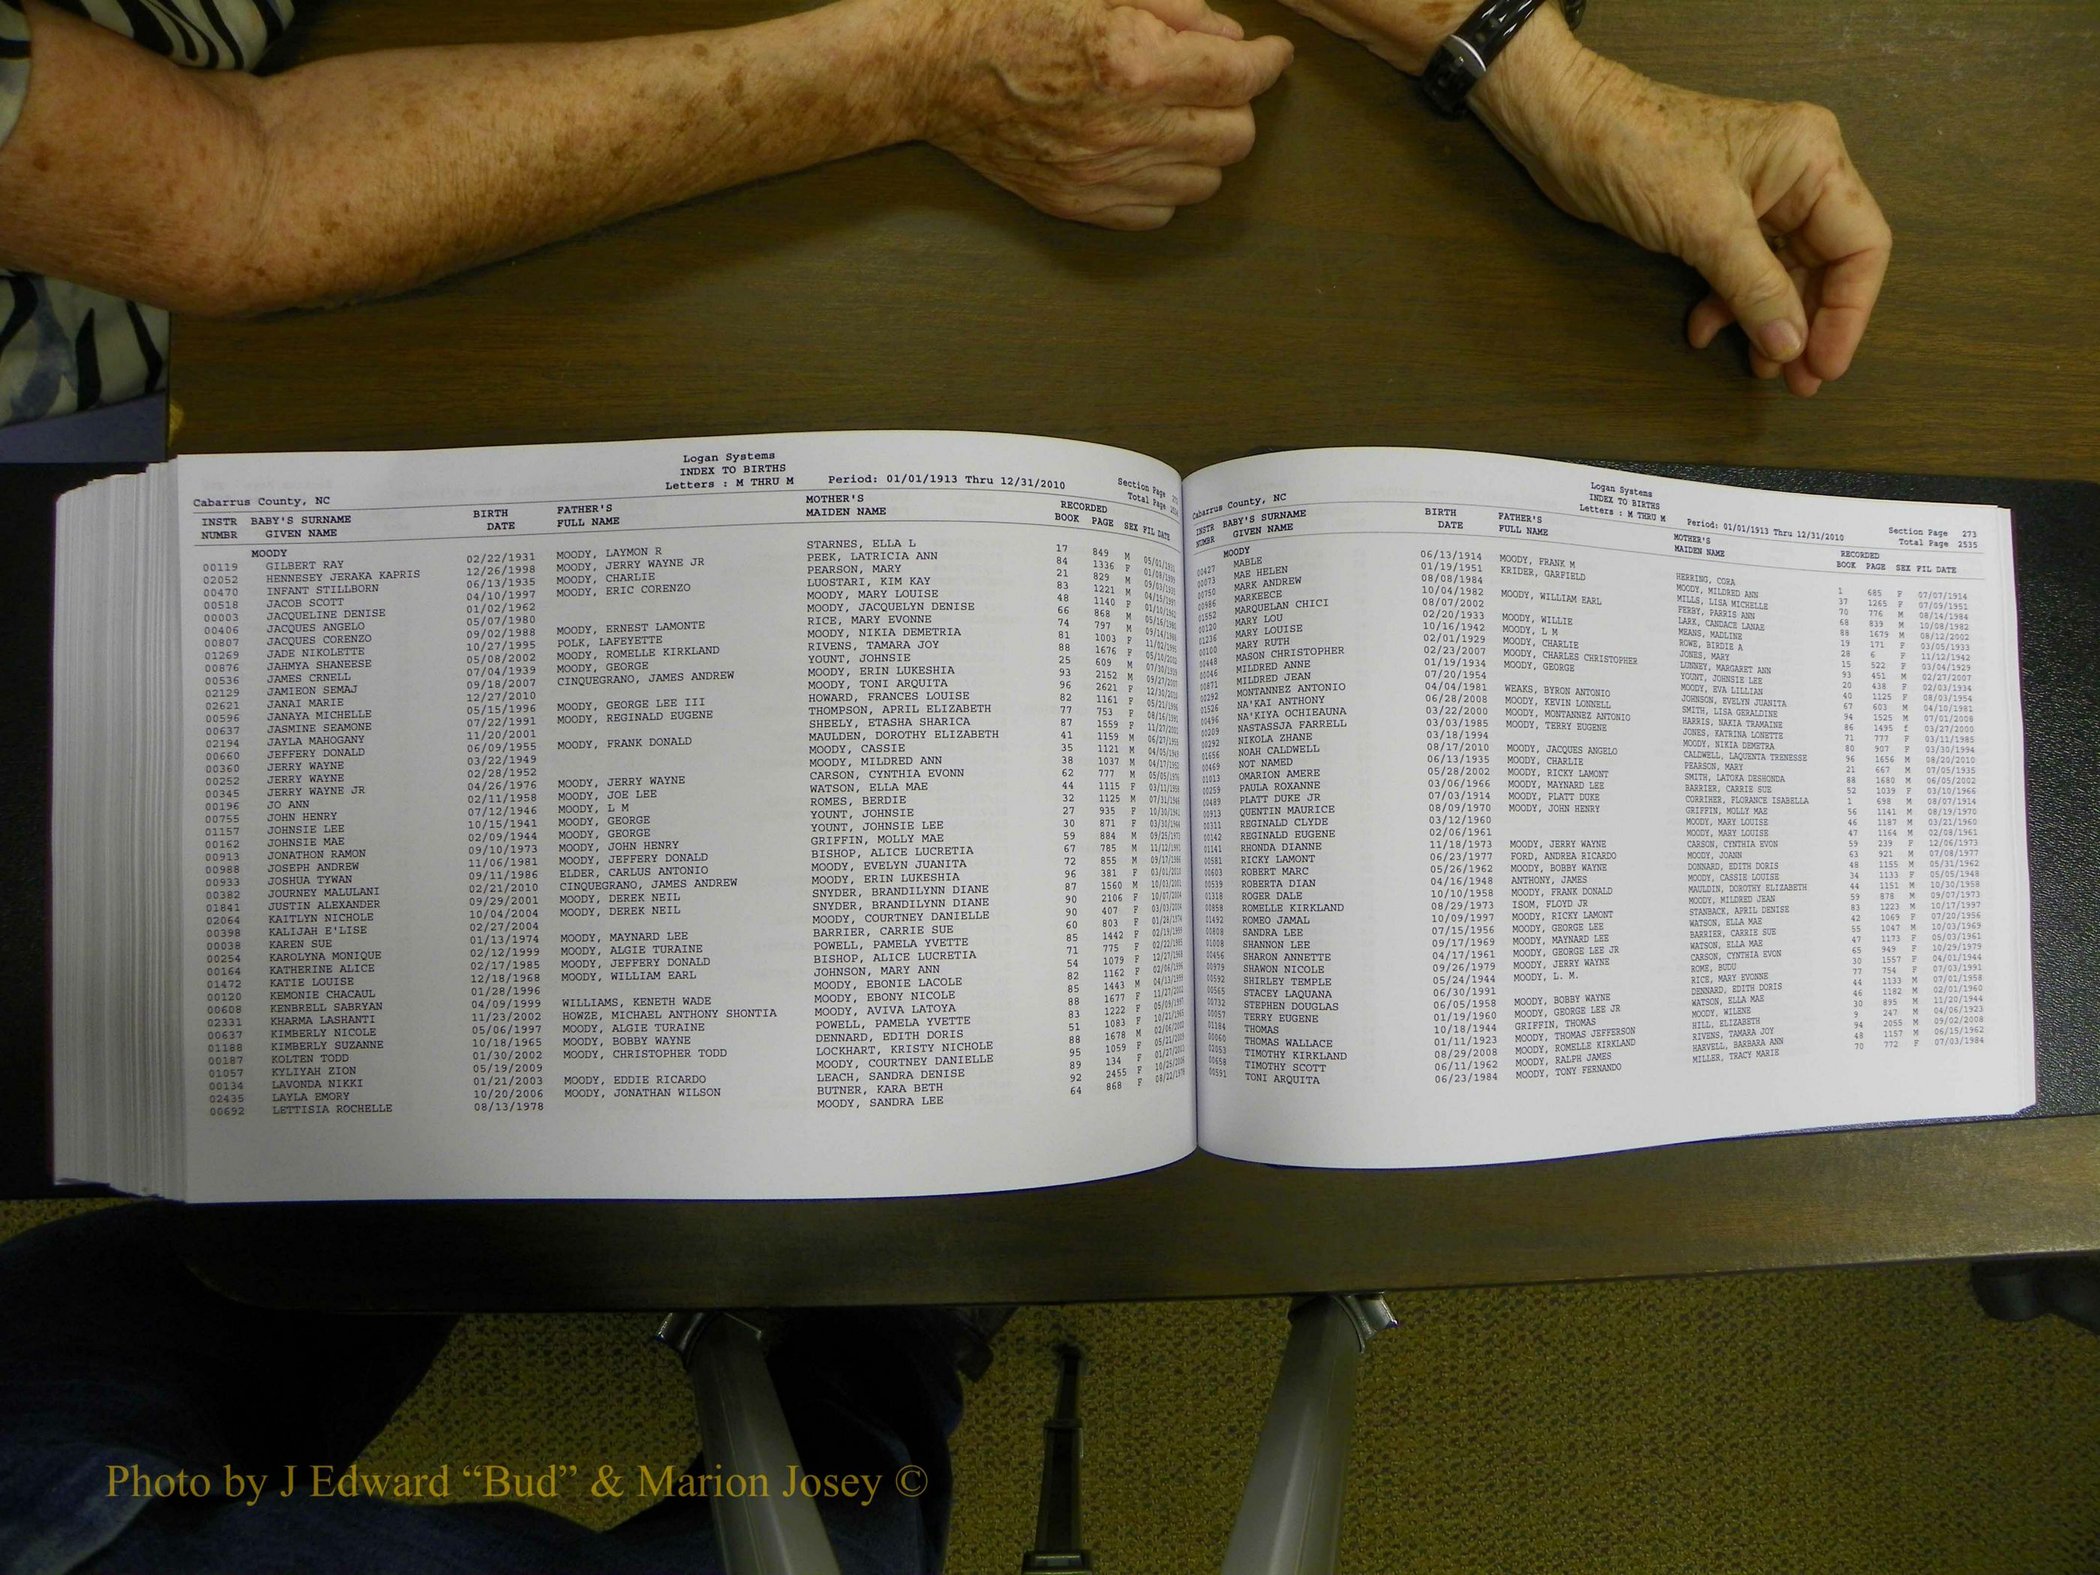 Logan Systems
INDEX TO BIRTHS
Letters : M THRU M Period: 01/01/1913 Thru 12/31/2010 Section Page
Total Page
Cabarrus County, NC
INSTR BABY'S SURNAME BIRTH FATHER'S MOTHER'S RECORDED
NUMBR GIVEN NAME DATE FULL NAME MAIDEN NAME BOOK PAGE SEX FIL DATE
MOODY
00119 GILBERT RAY 02/22/1931 MOODY, LAYMON R STARNES, ELLA L 17 849 M
02052 HENNESEY JERAKA KAPRIS 12/26/1998 MOODY, JERRY WAYNE JR PEEK, LATRICIA ANN 84 1336 F
00470 INFANT STILLBORN 06/13/1935 MOODY, CHARLIE PEARSON, MARY 21 829 M
00518 JACOB SCOTT 04/10/1997 MOODY, ERIC CORENZO LUOSTARI, KIM KAY 83 1221 M
00003 JACQUELINE DENISE 01/02/1962 MOODY, MARY LOUISE 48 1140 F
00406 JACQUES ANGELO 05/07/1980 MOODY, JACQUELYN DENISE 66 868 M
00807 JACQUES CORENZO 09/02/1988 MOODY, ERNEST LAMONTE RICE, MARY EVONNE 74 797 M
01269 JADE NIKOLETTE 10/27/1995 POLK, LAFEYETTE MOODY, NIKIA DEMETRIA 81 1003 F
00876 JAHMYA SHANEESE 05/08/2002 MOODY, ROMELLE KIRKLAND RIVENS, TAMARA JOY 88 1676 F
00536 JAMES CRNELL 07/04/1939 MOODY, GEORGE YOUNT, JOHNSIE 25 609 M
02129 JAMIEON SEMAJ 09/18/2007 CINQUEGRANO, JAMES ANDREW MOODY, ERIN LUKESHIA 93 2152 M
02621 JANAI MARIE 12/27/2010 MOODY, TONI ARQUITA 96 2621 F
00596 JANAYA MICHELLE 05/15/1996 MOODY, GEORGE LEE III HOWARD, FRANCES LOUISE 82 1161 F
00637 JASMINE SEAMONE 07/22/1991 MOODY, REGINALD EUGENE THOMPSON, APRIL ELIZABETH 77 753 F
02194 JAYLA MAHOGANY 11/20/2001 SHEELY, ETASHA SHARICA 87 1559 F
00660 JEFFERY DONALD 06/09/1955 MOODY, FRANK DONALD MAULDEN, DOROTHY ELIZABETH 41 1159 M
00360 JERRY WAYNE 03/22/1949 MOODY, CASSIE 35 1121 M
00252 JERRY WAYNE 02/28/1952 MOODY, MILDRED ANN 38 1037 M
00345 JERRY WAYNE JR 04/26/1976 MOODY, JERRY WAYNE CARSON, CYNTHIA EVONN 62 777 M
00196 JO ANN 02/11/1958 MOODY, JOE LEE WATSON, ELLA MAE 44 1115 F
00755 JOHN HENRY 07/12/1946 MOODY, L M ROMES, BERDIE 32 1125 M
01157 JOHNSIE LEE 10/15/1941 MOODY, GEORGE YOUNT, JOHNSIE 27 935 F
00162 JOHNSIE MAE 02/09/1944 MOODY, GEORGE YOUNT, JOHNSIE LEE 30 871 F
00913 JONATHON RAMON 09/10/1973 MOODY, JOHN HENRY GRIFFIN, MOLLY MAE 59 884 M
00988 JOSEPH ANDREW 11/06/1981 MOODY, JEFFERY DONALD BISHOP, ALICE LUCRETIA 67 785 M
00933 JOSHUA TYWAN 09/11/1986 ELDER, CARLUS ANTONIO MOODY, EVELYN JUANITA 72 855 M
00382 JOURNEY MALULANI 02/21/2010 CINQUEGRANO, JAMES ANDREW MOODY, ERIN LUKESHIA 96 381 F
01841 JUSTIN ALEXANDER 09/29/2001 MOODY, DEREK NEIL SNYDER, BRANDILYNN DIANE 87 1560 M
02064 KAITLYN NICHOLE 10/04/2004 MOODY, DEREK NEIL SNYDER, BRANDILYNN DIANE 90 2106 F
00398 KALIJAH E'LISE 02/27/2004 MOODY, COURTNEY DANIELLE 90 407 F
00038 KAREN SUE 01/13/1974 MOODY, MAYNARD LEE BARRIER, CARRIE SUE 60 803 F
00254 KAROLYNA MONIQUE 02/12/1999 MOODY, ALGIE TURAINE POWELL, PAMELA YVETTE 85 1442 F
00164 KATHERINE ALICE 02/17/1985 MOODY, JEFFERY DONALD BISHOP, ALICE LUCRETIA 71 775 F
01472 KATIE LOUISE 12/18/1968 MOODY, WILLIAM EARL JOHNSON, MARY ANN 54 1079 F
00120 KEMONIE CHACAUL 01/28/1996 MOODY, EBONIE LACOLE 82 1162 F
00608 KENBRELL SABRYAN 04/09/1999 WILLIAMS, KENETH WADE MOODY, EBONY NICOLE 85 1443 M
02331 KHARMA LASHANTI 11/23/2002 HOWZE, MICHAEL ANTHONY SHONTIA MOODY, AVIVA LATOYA 88 1677 F
00637 KIMBERLY NICOLE 05/06/1997 MOODY, ALGIE TURAINE POWELL, PAMELA YVETTE 83 1222 F
01188 KIMBERLY SUZANNE 10/18/1965 MOODY, BOBBY WAYNE DENNARD, EDITH DORIS 51 1083 F
00187 KOLTEN TODD 01/30/2002 MOODY, CHRISTOPHER TODD LOCKHART, KRISTY NICHOLE 88 1678 M
01057 KYLIYAH ZION 05/19/2009 MOODY, COURTNEY DANIELLE 95 1059 F
00134 LAVONDA NIKKI 01/21/2003 MOODY, EDDIE RICARDO LEACH, SANDRA DENISE 89 134 F
02435 LAYLA EMORY 10/20/2006 MOODY, JONATHAN WILSON BUTNER, KARA BETH 92 2455 F
00692 LETTISIA ROCHELLE 08/13/1978 MOODY, SANDRA LEE 64 868 F
Logan Systems
INDEX TO BIRTHS
Letters : M THRU M Period: 01/01/1913 Thru 12/31/2010 Section Page 273
Total Page 2535
Cabarrus County, NC
INSTR BABY'S SURNAME BIRTH FATHER'S MOTHER'S RECORDED
NUMBR GIVEN NAME DATE FULL NAME MAIDEN NAME BOOK PAGE SEX FIL DATE
MOODY
00427 MABLE 06/13/1914 MOODY, FRANK M HERRING, CORA 1 685 F 07/07/1914
00073 MAE HELEN 01/19/1951 KRIDER, GARFIELD MOODY, MILDRED ANN 37 1265 F 07/09/1951
00750 MARK ANDREW 08/08/1984 MILLS, LISA MICHELLE 70 776 M 08/14/1984
00986 MARKEECE 10/04/1982 MOODY, WILLIAM EARL FERBY, PARRIS ANN 68 839 M 10/08/1982
01552 MARQUELAN CHICI 08/07/2002 LARK, CANDACE LANAE 88 1679 M 08/12/2002
00120 MARY LOU 02/20/1933 MOODY, WILLIE MEANS, MADLINE 19 171 F 03/05/1933
01236 MARY LOUISE 10/16/1942 MOODY, L M ROWE, BIRDIE A 28 6 F 11/12/1942
00100 MARY RUTH 02/01/1929 MOODY, CHARLIE JONES, MARY 15 522 F 03/04/1929
00448 MASON CHRISTOPHER 02/23/2007 MOODY, CHARLES CHRISTOPHER LUNNEY, MARGARET ANN 93 451 M 02/27/2007
00046 MILDRED ANNE 01/19/1934 MOODY, GEORGE YOUNT, JOHNSIE LEE 20 438 F 02/03/1934
00871 MILDRED JEAN 07/20/1954 MOODY, EVA LILLIAN 40 1125 F 08/03/1954
00292 MONTANNEZ ANTONIO 04/04/1981 WEAKS, BYRON ANTONIO JOHNSON, EVELYN JUANITA 67 603 M 04/10/1981
01526 NA'KAI ANTHONY 06/28/2008 MOODY, KEVIN LONNELL SMITH, LISA GERALDINE 94 1525 M 07/01/2008
00496 NA'KIYA OCHIEAUNA 03/22/2000 MOODY, MONTANNEZ ANTONIO HARRIS, NAKIA TRAMAINE 86 1495 F 03/27/2000
00209 NASTASSJA FARRELL 03/03/1985 MOODY, TERRY EUGENE JONES, KATRINA LONETTE 71 777 F 03/11/1985
00292 NIKOLA ZHANE 03/18/1994 MOODY, NIKIA DEMETRA 80 907 F 03/30/1994
01656 NOAH CALDWELL 08/17/2010 MOODY, JACQUES ANGELO CALDWELL, LAQUENTA TRENESSE 96 1656 M 08/20/2010
00469 NOT NAMED 06/13/1935 MOODY, CHARLIE PEARSON, MARY 21 667 M 07/05/1935
01013 OMARION AMERE 05/28/2002 MOODY, RICKY LAMONT SMITH, LATOKA DESHONDA 88 1680 M 06/05/2002
00259 PAULA ROXANNE 03/06/1966 MOODY, MAYNARD LEE BARRIER, CARRIE SUE 52 1039 F 03/10/1966
00489 PLATT DUKE JR 07/03/1914 MOODY, PLATT DUKE CORRIHER, FLORANCE ISABELLA 1 698 M 08/07/1914
00913 QUENTIN MAURICE 08/09/1970 MOODY, JOHN HENRY GRIFFIN, MOLLY MAE 56 1141 M 08/19/1970
00311 REGINALD CLYDE 03/12/1960 MOODY, MARY LOUISE 46 1187 M 03/21/1960
00142 REGINALD EUGENE 02/06/1961 MOODY, MARY LOUISE 47 1164 M 02/08/1961
01141 RHONDA DIANNE 11/18/1973 MOODY, JERRY WAYNE CARSON, CYNTHIA EVON 59 239 F 12/06/1973
00581 RICKY LAMONT 06/23/1977 FORD, ANDREA RICARDO MOODY, JOANN 63 921 M 07/08/1977
00603 ROBERT MARC 05/26/1962 MOODY, BOBBY WAYNE DONNARD, EDITH DORIS 48 1155 M 05/31/1962
00539 ROBERTA DIAN 04/16/1948 ANTHONY, JAMES MOODY, CASSIE LOUISE 34 1133 F 05/05/1948
01318 ROGER DALE 10/10/1958 MOODY, FRANK DONALD MAULDIN, DOROTHY ELIZABETH 44 1151 M 10/30/1958
00858 ROMELLE KIRKLAND 08/29/1973 ISOM, FLOYD JR MOODY, MILDRED JEAN 59 878 M 09/07/1973
01492 ROMEO JAMAL 10/09/1997 MOODY, RICKY LAMONT STANBACK, APRIL DENISE 83 1223 M 10/17/1997
00808 SANDRA LEE 07/15/1956 MOODY, GEORGE LEE WATSON, ELLA MAE 42 1069 F 07/20/1956
01008 SHANNON LEE 09/17/1969 MOODY, MAYNARD LEE BARRIER, CARRIE SUE 55 1047 M 10/03/1969
00456 SHARON ANNETTE 04/17/1961 MOODY, GEORGE LEE JR WATSON, ELLA MAE 47 1173 F 05/03/1961
00979 SHAWON NICOLE 09/26/1979 MOODY, JERRY WAYNE CARSON, CYNTHIA EVON 65 949 F 10/29/1979
00592 SHIRLEY TEMPLE 05/24/1944 MOODY, L. M. ROME, BUDU 30 1557 F 04/01/1944
00565 STACEY LAQUANA 06/30/1991 RICE, MARY EVONNE 77 754 F 07/03/1991
00732 STEPHEN DOUGLAS 06/05/1958 MOODY, BOBBY WAYNE DENNARD, EDITH DORIS 44 1133 M 07/01/1958
00057 TERRY EUGENE 01/19/1960 MOODY, GEORGE LEE JR WATSON, ELLA MAE 46 1182 M 02/01/1960
01184 THOMAS 10/18/1944 GRIFFIN, THOMAS MOODY, WILENE 30 895 M 11/20/1944
00060 THOMAS WALLACE 01/11/1923 MOODY, THOMAS JEFFERSON HILL, ELIZABETH 9 247 M 04/06/1923
02053 TIMOTHY KIRKLAND 08/29/2008 MOODY, ROMELLE KIRKLAND RIVENS, TAMARA JOY 94 2055 M 09/02/2008
00658 TIMOTHY SCOTT 06/11/1962 MOODY, RALPH JAMES HARVELL, BARBARA ANN 48 1157 M 06/15/1962
00591 TONI ARQUITA 06/23/1984 MOODY, TONY FERNANDO MILLER, TRACY MARIE 70 772 F 07/03/1984
Photo by J Edward “Bud” & Marion Josey ©